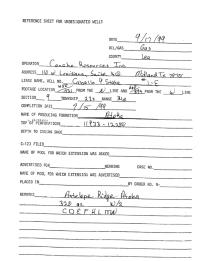 REFERENCE SHEET FOR UNDESIGNATED WELLS
DATE 9/17/99
OIL/GAS Gas
COUNTY Lea
OPERATOR Concho Resources Inc
ADDRESS 110 W Louisiana, Suite 410 Midland Tx 79701
LEASE NAME, WELL NO.
FOOTAGE LOCATION FROM THE N LINE AND FROM THE W LINE
SECTION 9 TOWNSHIP 23s RANGE 34e
COMPLETION DATE 7/15/99
NAME OF PRODUCING FORMATION Atoka
TOP OF PERFORATIONS
DEPTH TO CASING SHOE
C-123 FILED
NAME OF POOL FOR WHICH EXTENSION WAS ASKED
ADVERTISED FOR HEARING CASE NO.
NAME OF POOL FOR WHICH EXTENSION WAS ADVERTISED
PLACED IN BY ORDER NO. R-
REMARKS Antelope Ridge Atoka
320 ac W/2
C D E F K L M N